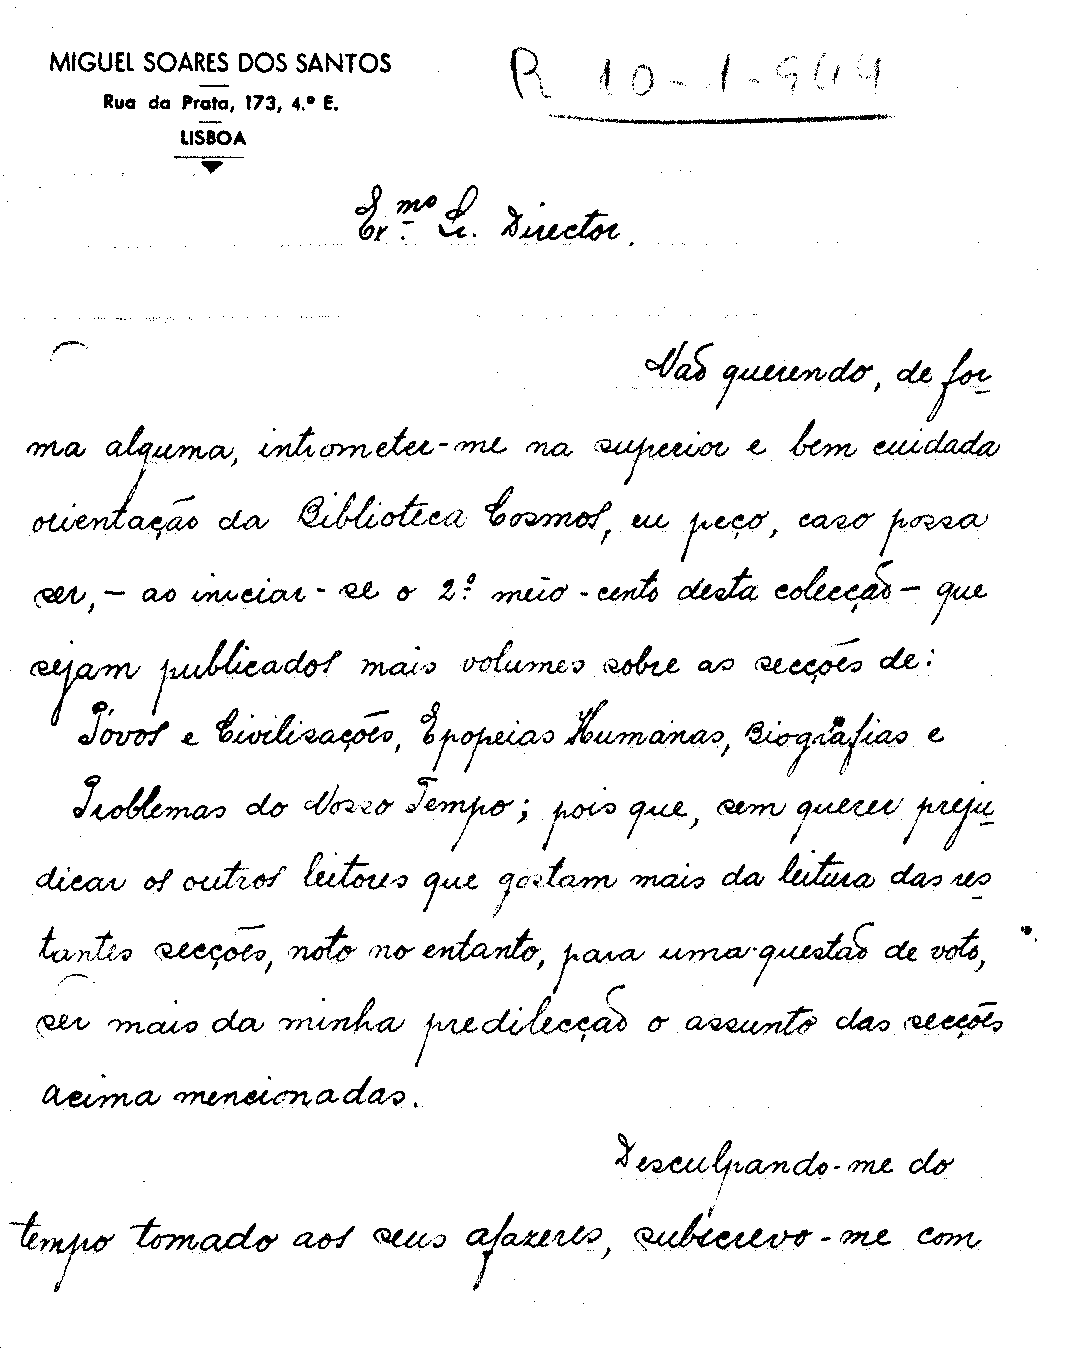 MIGUEL SOARES DOS SANTOS
Rua da Prata, 173, 4.º E.
LISBOA
R 10-1-944
Ex.mo Sr. Director.
Não querendo, de for-
ma alguma, intrometer-me na superior e bem cuidada
orientação da Biblioteca Cosmos, eu peço, caso possa
ser, - ao iniciar-se o 2.º meio-cento desta colecção - que
sejam publicados mais volumes sobre as secções de:
Póvos e Civilisações, Epopeias Humanas, Biografias e
Problemas do Nosso Tempo; pois que, sem querer preju-
dicar os outros leitores que gostam mais da leitura das res-
tantes secções, noto no entanto, para uma questão de voto,
ser mais da minha predilecção o assunto das secções
acima mencionadas.
Desculpando-me do
tempo tomado aos seus afazeres, subscrevo-me com